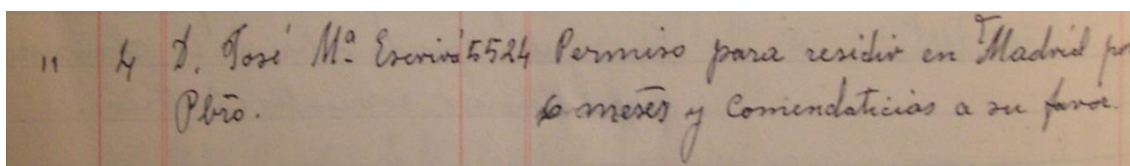 " 4 D. José Mª Escrivá 5524 Permiso para residir en Madrid por
Pbro. 6 meses y Comendaticias a su favor.